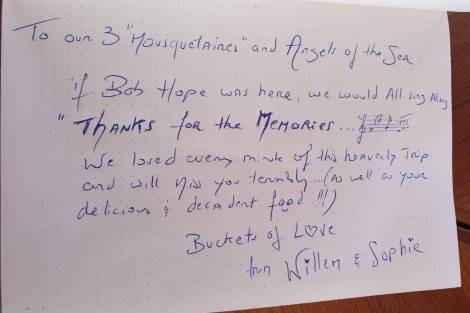 To our 3 "Mousquetaires" and Angels of the Sea
If Bob Hope was here, we would All sing Along
"THANKS for the MEMORIES...
We loved every minute of this heavenly Trip
and will Miss you terribly...(As well as your
delicious & decadent food !!!)
Buckets of LOVE
from Willem & Sophie